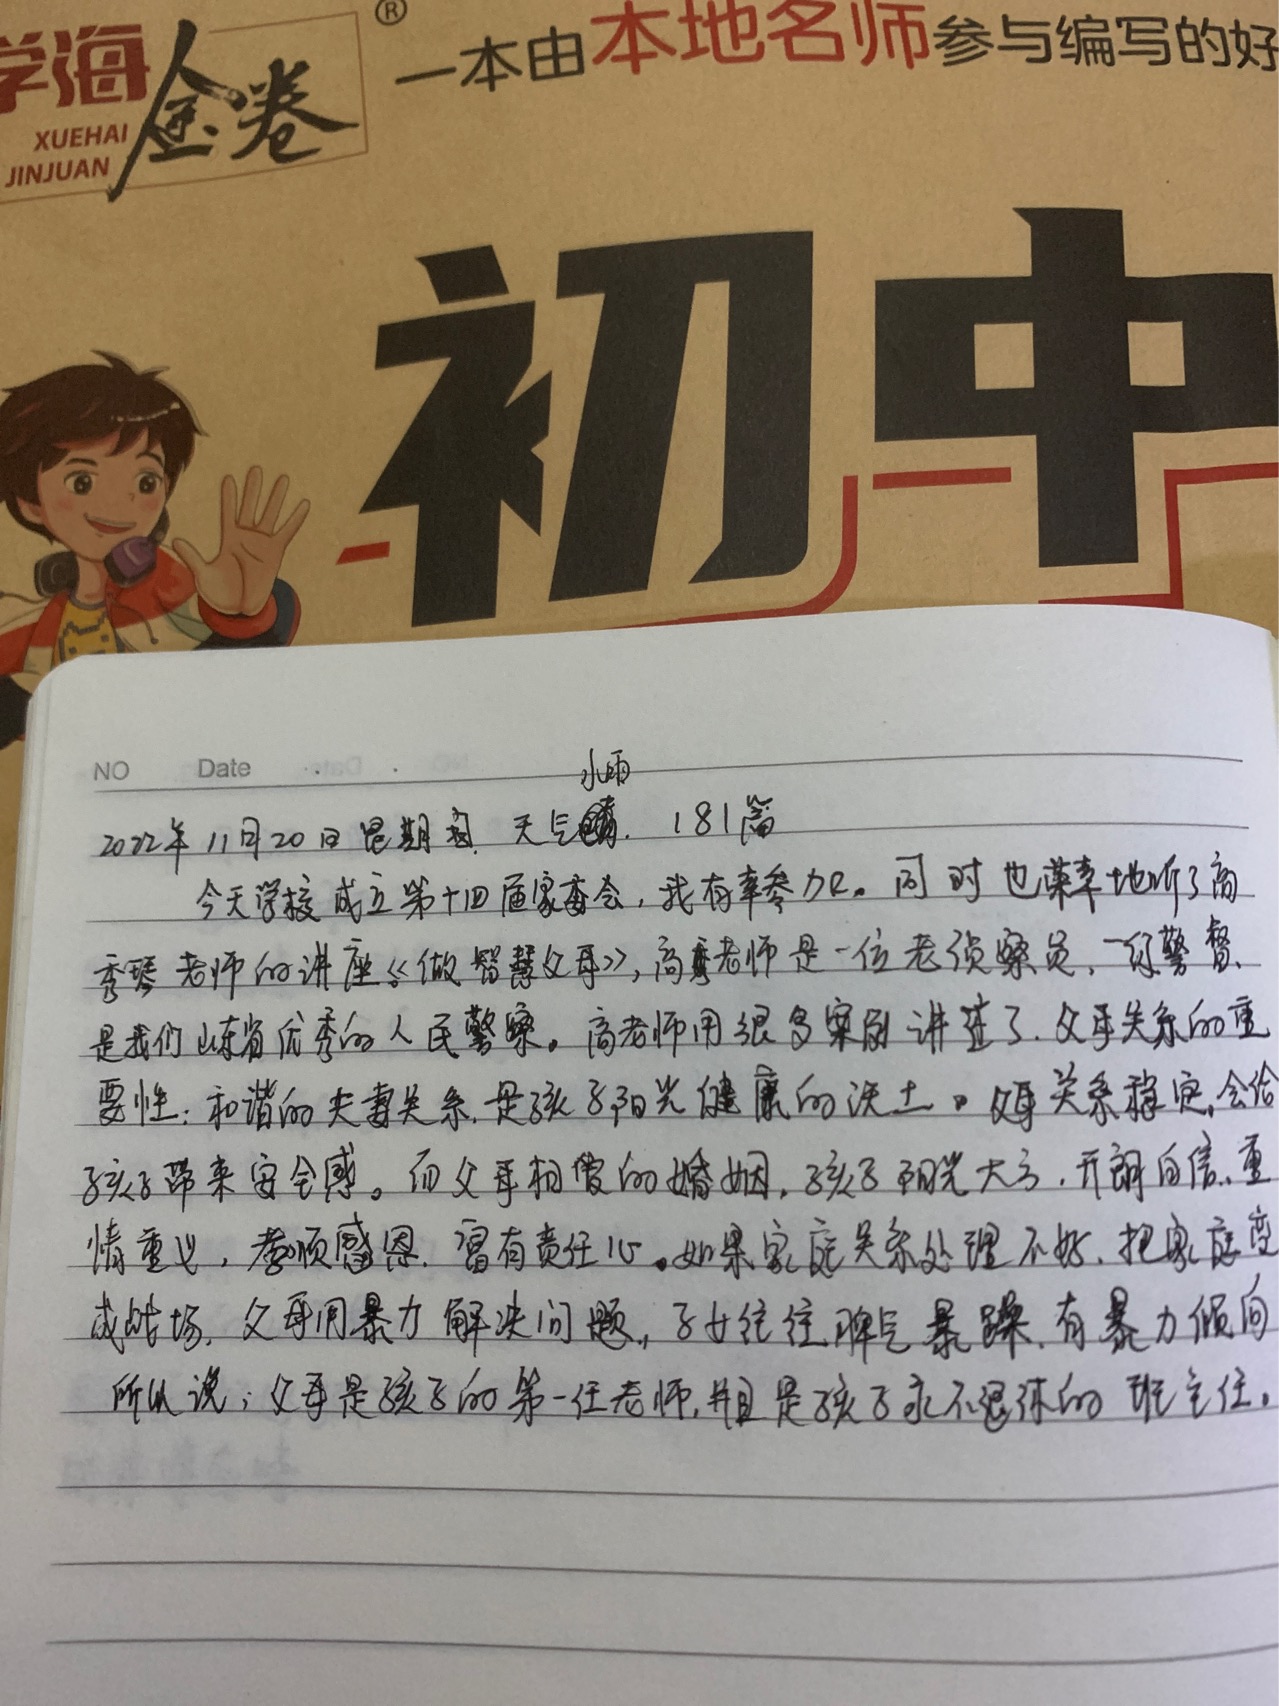 学海金卷®
XUEHAI
JINJUAN
一本由本地名师参与编写的好
初中
NO Date
小雨
2022年11月20日 星期日 天气 181篇
今天学校成立第十四届家委会，我有幸参加。同时也荣幸地听了高
秀琴老师的讲座《做智慧父母》，高老师是一位老侦察员、一级警督、
是我们山东省优秀的人民警察。高老师用很多案例讲述了、父母关系的重
要性：和谐的夫妻关系、是孩子阳光健康的沃土。父母关系稳定，会给
孩子带来安全感。而父母相爱的婚姻，孩子阳光大方、开朗自信、重
情重义，孝顺感恩、富有责任心。如果家庭关系处理不好、把家庭变
成战场、父母用暴力解决问题，子女往往脾气暴躁、有暴力倾向
所以说；父母是孩子的第一任老师，并且是孩子永不退休的班主任。